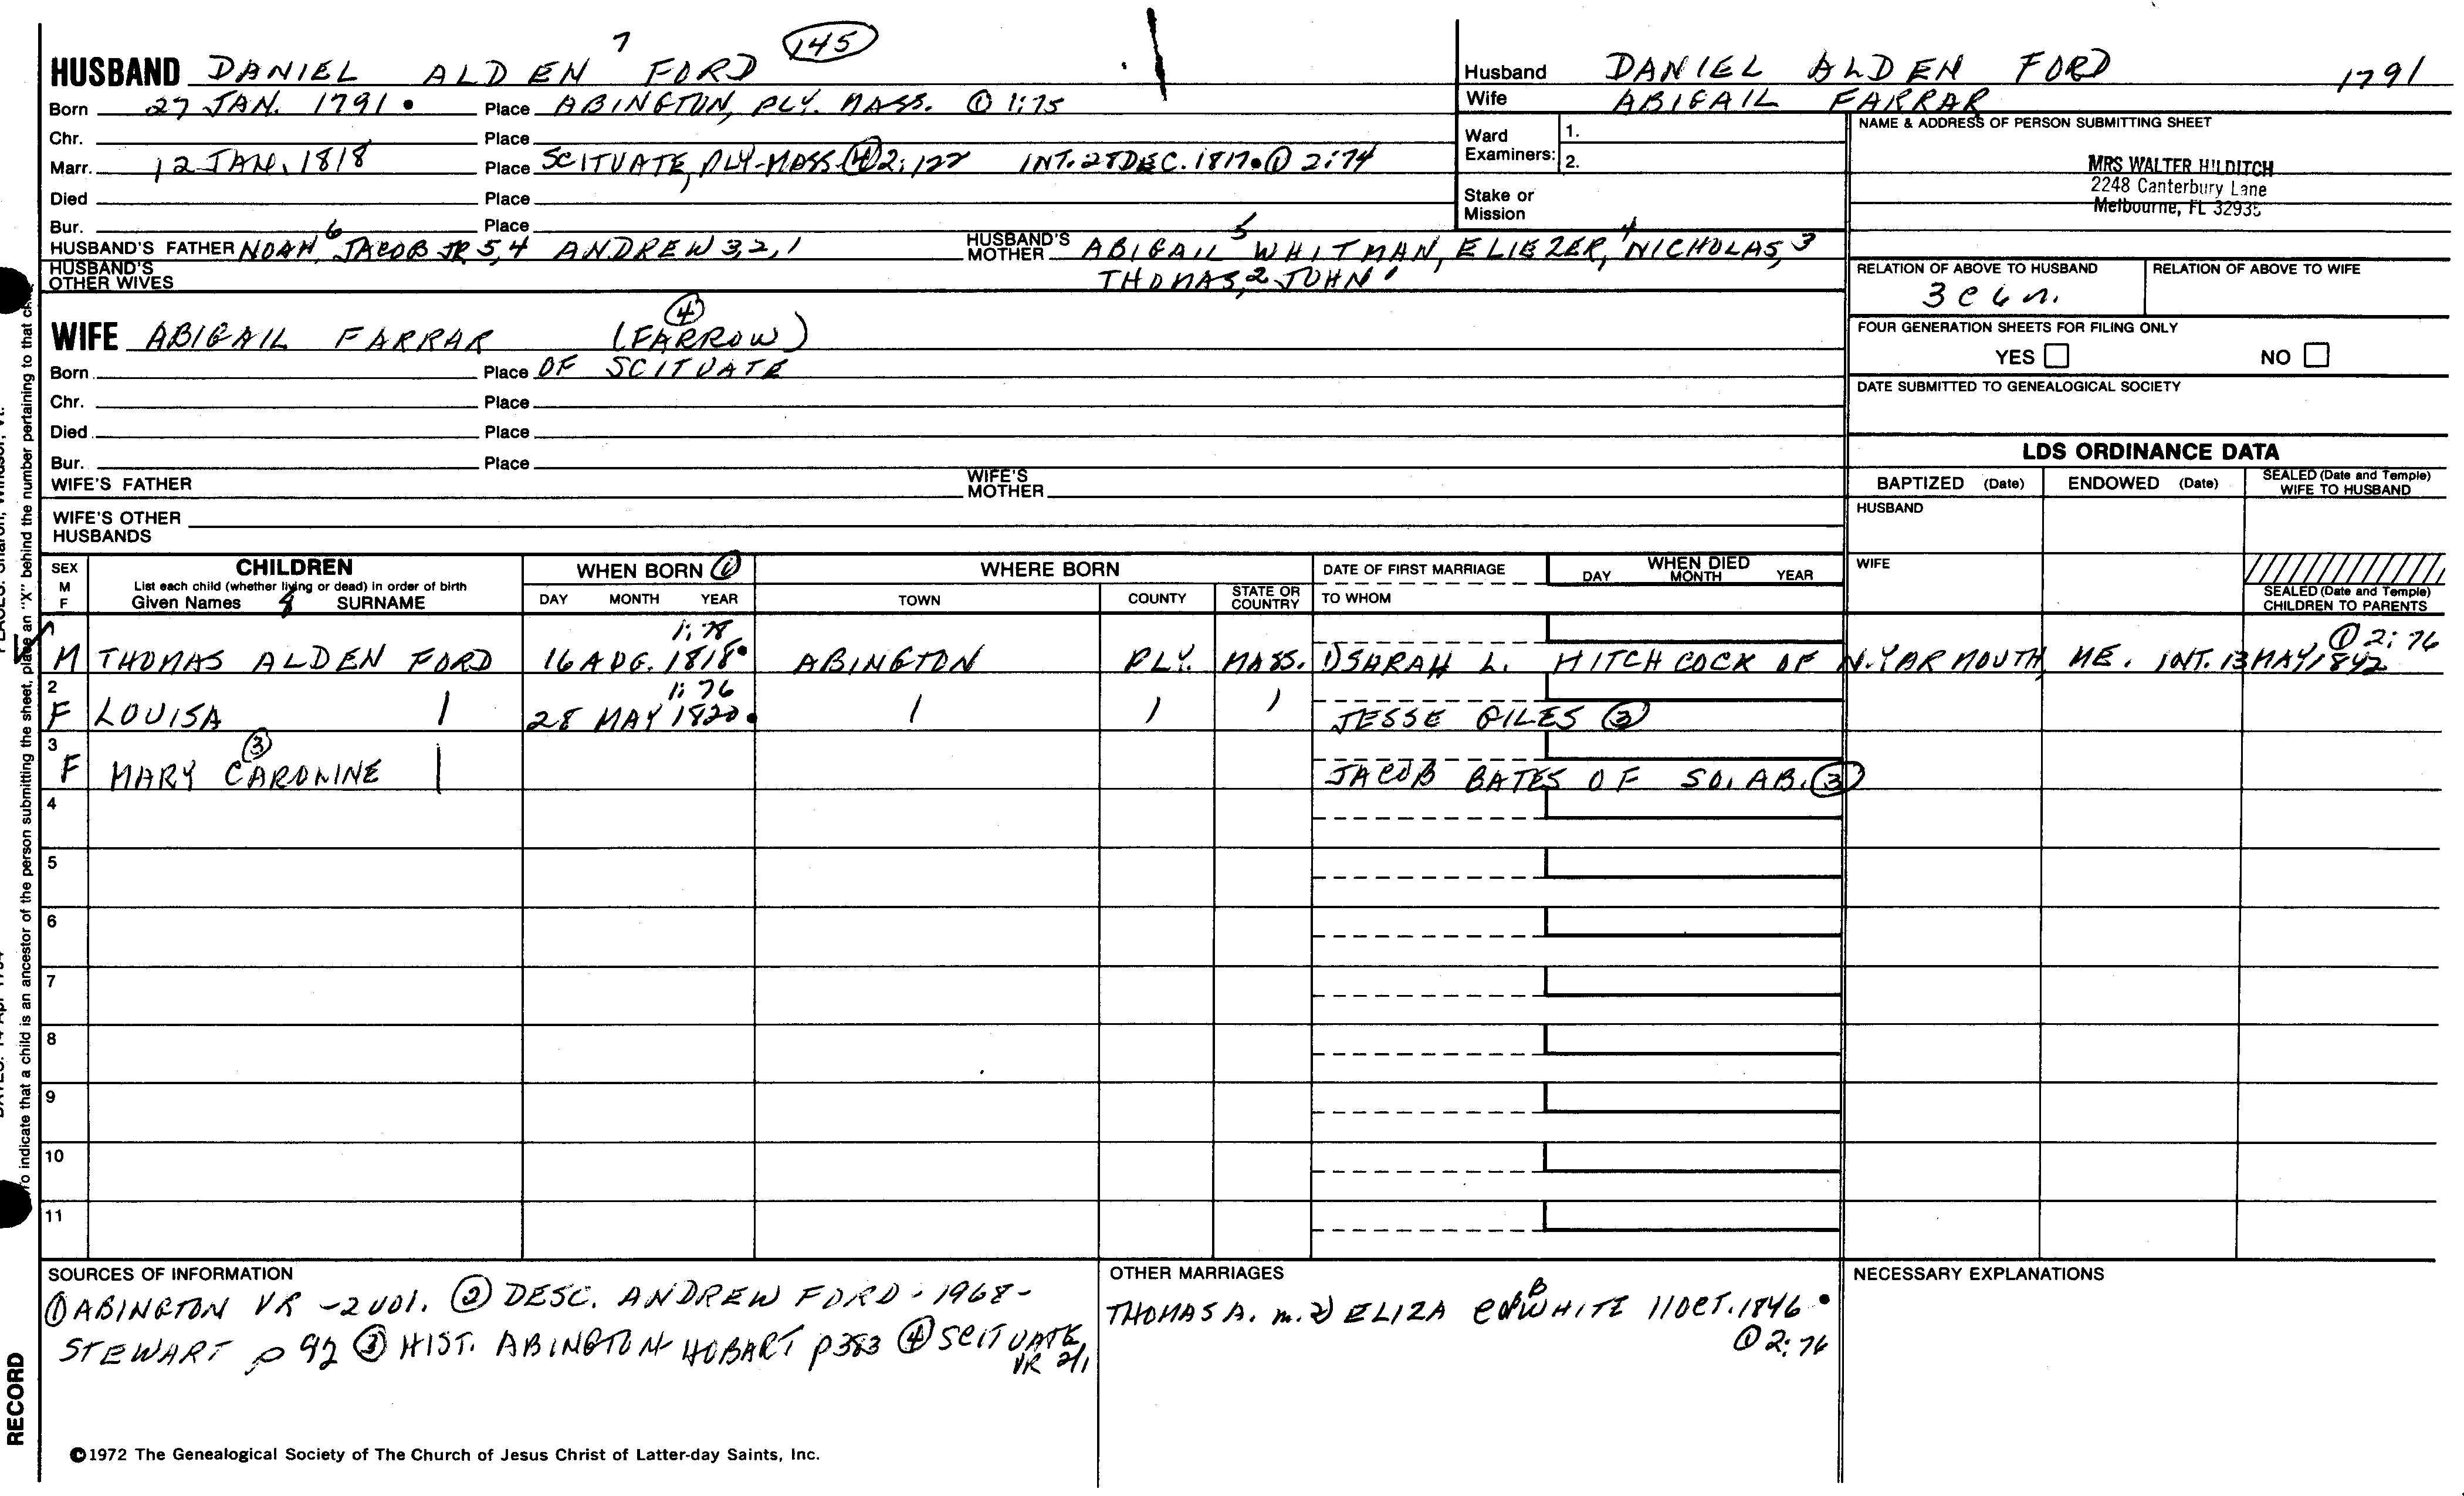 7 145
HUSBAND DANIEL ALDEN FORD
Born 27 JAN. 1791 Place ABINGTON, PLY. MASS. ① 1:75
Chr. Place
Marr. 12 JAN. 1818 Place SCITUATE, PLY-MASS ④ 2:122 INT. 28 DEC. 1817 ① 2:74
Died Place
Bur. Place
HUSBAND'S FATHER NOAH 6, JACOB JR 5,4 ANDREW 3,2,1 HUSBAND'S MOTHER ABIGAIL 5 WHITMAN, ELIEZER, 4 NICHOLAS, 3
HUSBAND'S OTHER WIVES THOMAS, 2 JOHN 1
WIFE ABIGAIL FARRAR (FARROW) ④
Born Place OF SCITUATE
Chr. Place
Died Place
Bur. Place
WIFE'S FATHER WIFE'S MOTHER
WIFE'S OTHER HUSBANDS
Husband DANIEL ALDEN FORD 1791
Wife ABIGAIL FARRAR
Ward Examiners: 1.
2.
Stake or Mission
NAME & ADDRESS OF PERSON SUBMITTING SHEET
MRS WALTER HILDITCH
2248 Canterbury Lane
Melbourne, FL 32935
RELATION OF ABOVE TO HUSBAND RELATION OF ABOVE TO WIFE
3 C 4 n.
FOUR GENERATION SHEETS FOR FILING ONLY
YES NO
DATE SUBMITTED TO GENEALOGICAL SOCIETY
LDS ORDINANCE DATA
BAPTIZED (Date) ENDOWED (Date) SEALED (Date and Temple) WIFE TO HUSBAND
HUSBAND
WIFE
SEALED (Date and Temple) CHILDREN TO PARENTS
SEX M F CHILDREN WHEN BORN ① WHERE BORN DATE OF FIRST MARRIAGE WHEN DIED
List each child (whether living or dead) in order of birth
Given Names 8 SURNAME DAY MONTH YEAR TOWN COUNTY STATE OR COUNTRY TO WHOM DAY MONTH YEAR
1:78 ① 2:76
M THOMAS ALDEN FORD 16 AUG. 1818 ABINGTON PLY. MASS. 1) SARAH L. HITCHCOCK OF N. YARMOUTH, ME. INT. 13 MAY 1842
2 1:76
F LOUISA 28 MAY 1820 JESSE GILES ③
3 ③
F MARY CAROLINE JACOB BATES OF SO. AB. ③
4
5
6
7
8
9
10
11
SOURCES OF INFORMATION
① ABINGTON VR - 2 VOL. ② DESC. ANDREW FORD - 1968 -
STEWART p 92 ③ HIST. ABINGTON HOBART p383 ④ SCITUATE
VR 2/1
OTHER MARRIAGES
THOMAS A. m. 2) ELIZA B WHITE 11 OCT. 1846
① 2:76
NECESSARY EXPLANATIONS
©1972 The Genealogical Society of The Church of Jesus Christ of Latter-day Saints, Inc.
To indicate that a child is an ancestor of the person submitting the sheet, place an "X" behind the number pertaining to that child.
RECORD